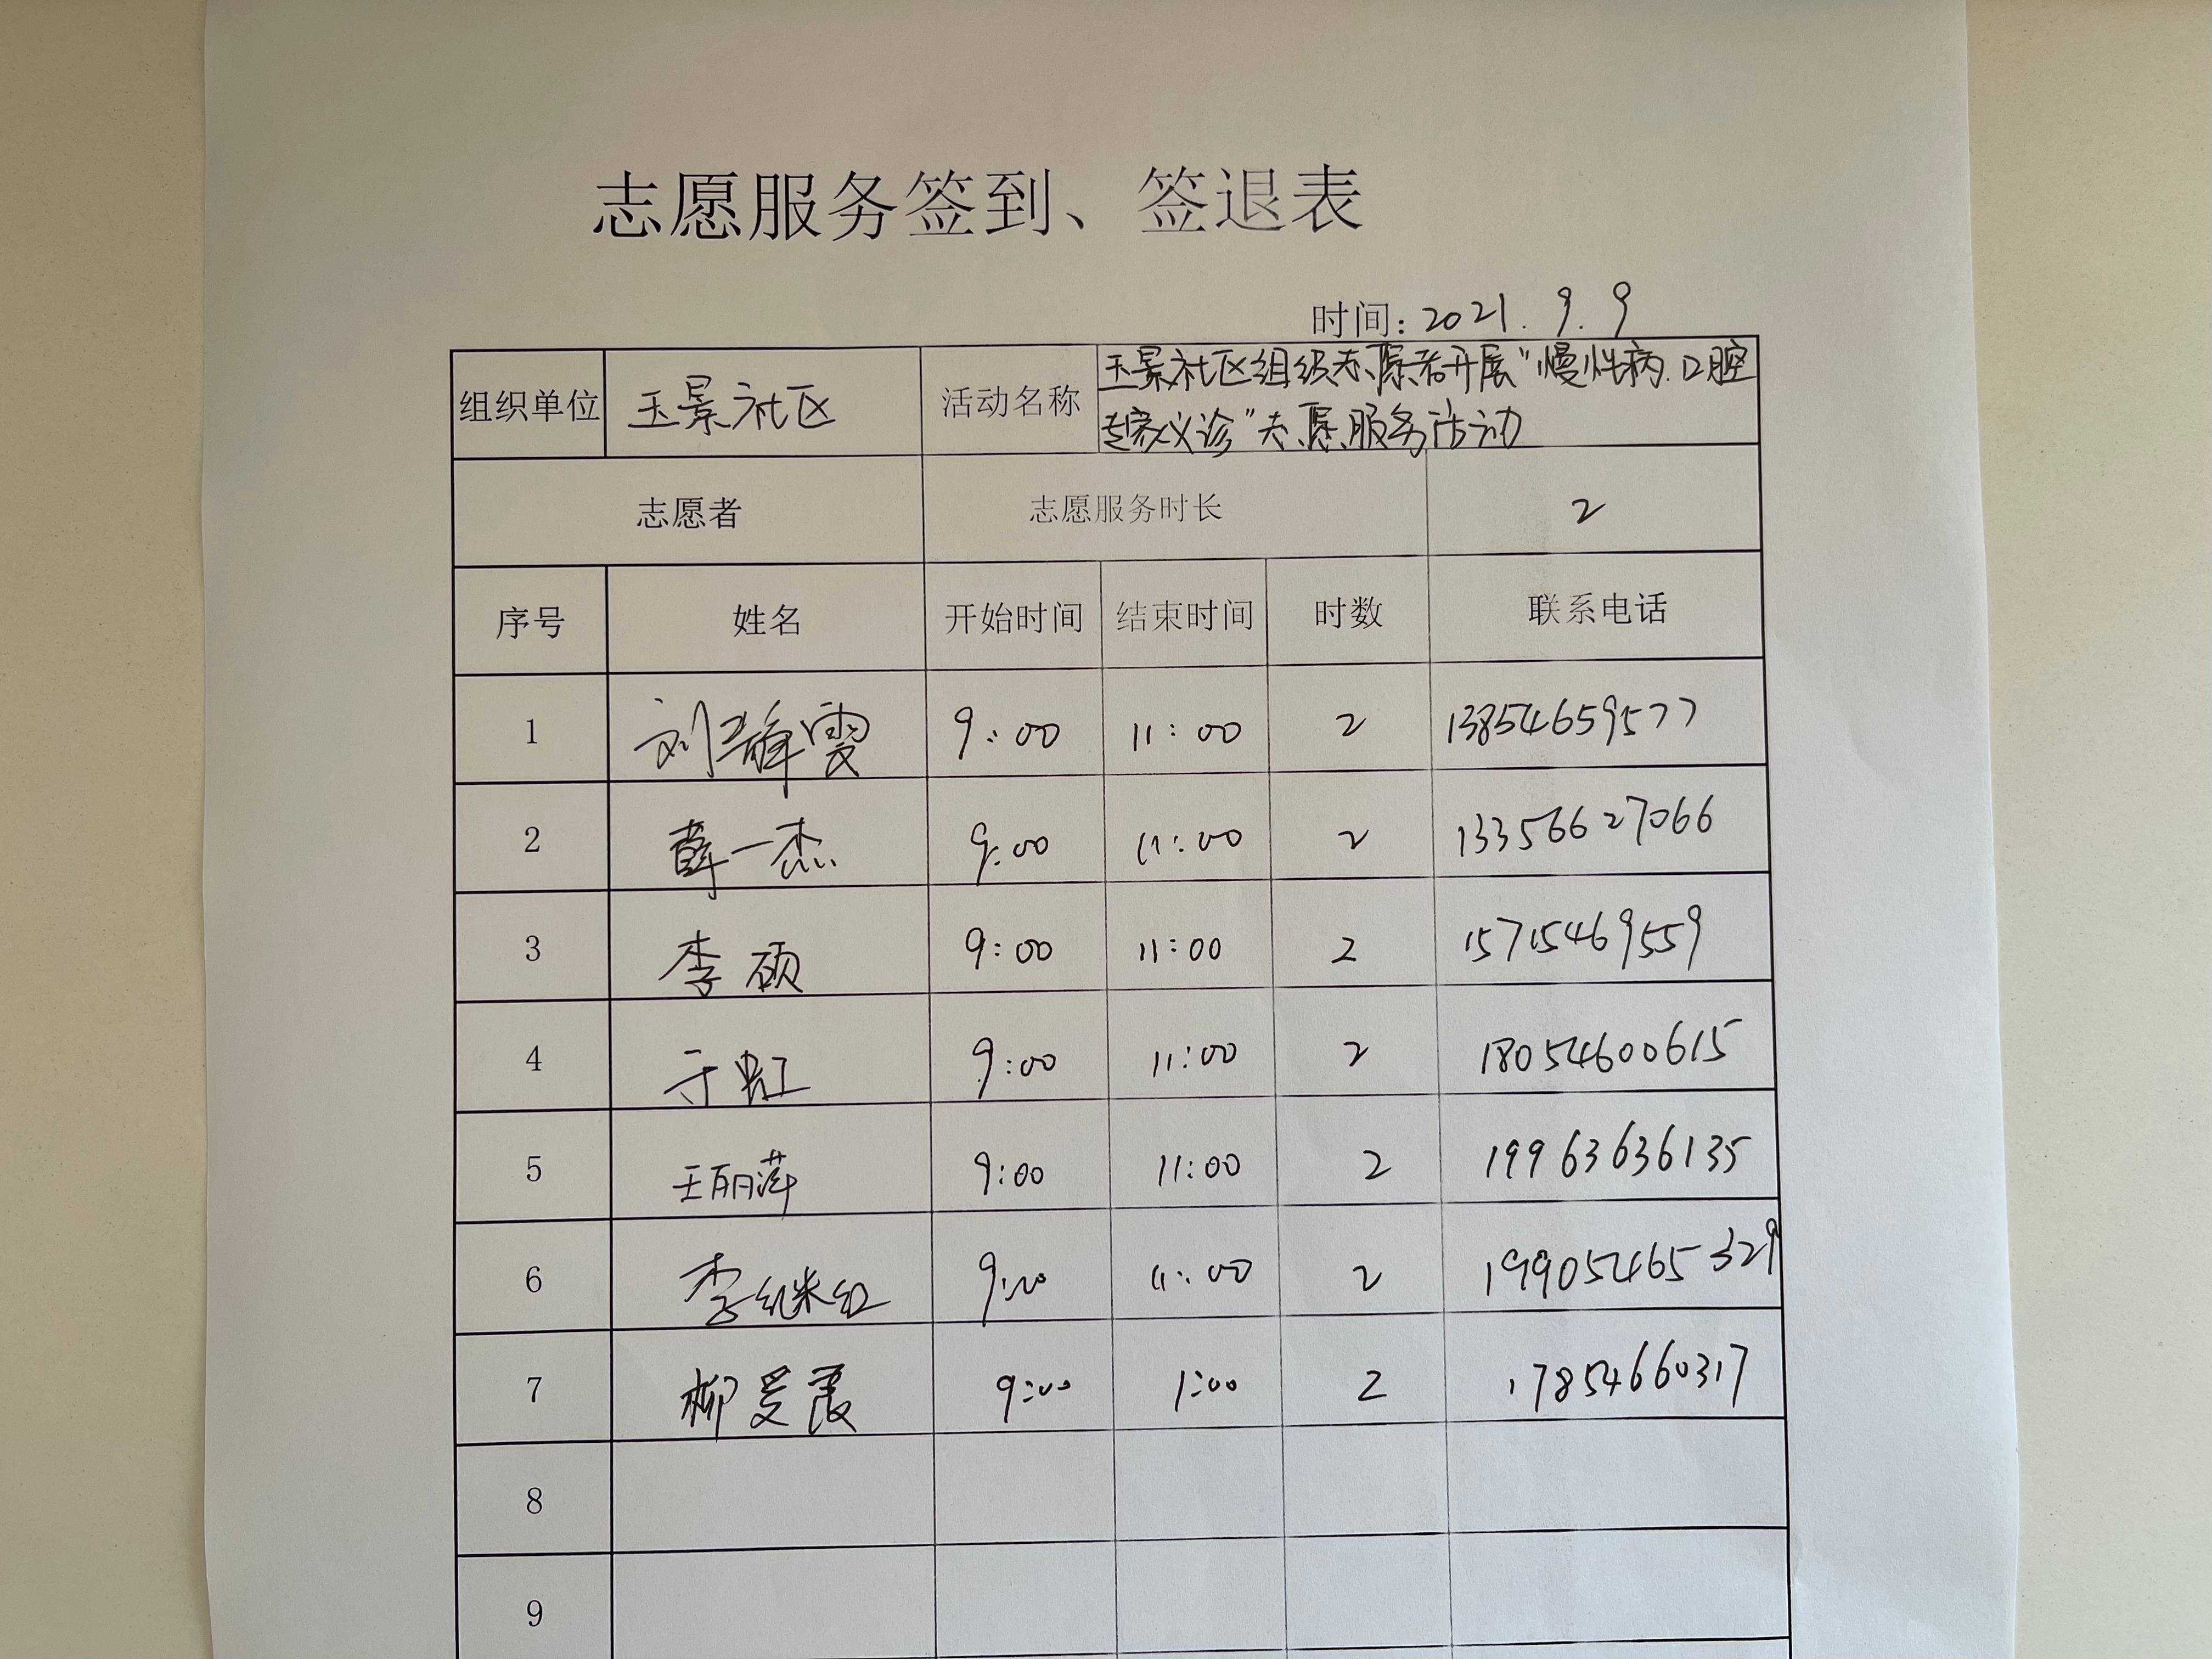 志愿服务签到、签退表
时间：2021.9.9
组织单位 玉景社区 活动名称 玉景社区组织志愿者开展"慢性病.口腔
专家义诊"志愿服务活动
志愿者 志愿服务时长 2
序号 姓名 开始时间 结束时间 时数 联系电话
1 刘静雯 9:00 11:00 2 13854659577
2 薛一杰 9:00 11:00 2 13356627066
3 李硕 9:00 11:00 2 15715469559
4 于虹 9:00 11:00 2 18054600615
5 王丽萍 9:00 11:00 2 19963636135
6 李继红 9:00 11:00 2 19905465329
7 柳爱霞 9:00 1:00 2 17854660317
8
9